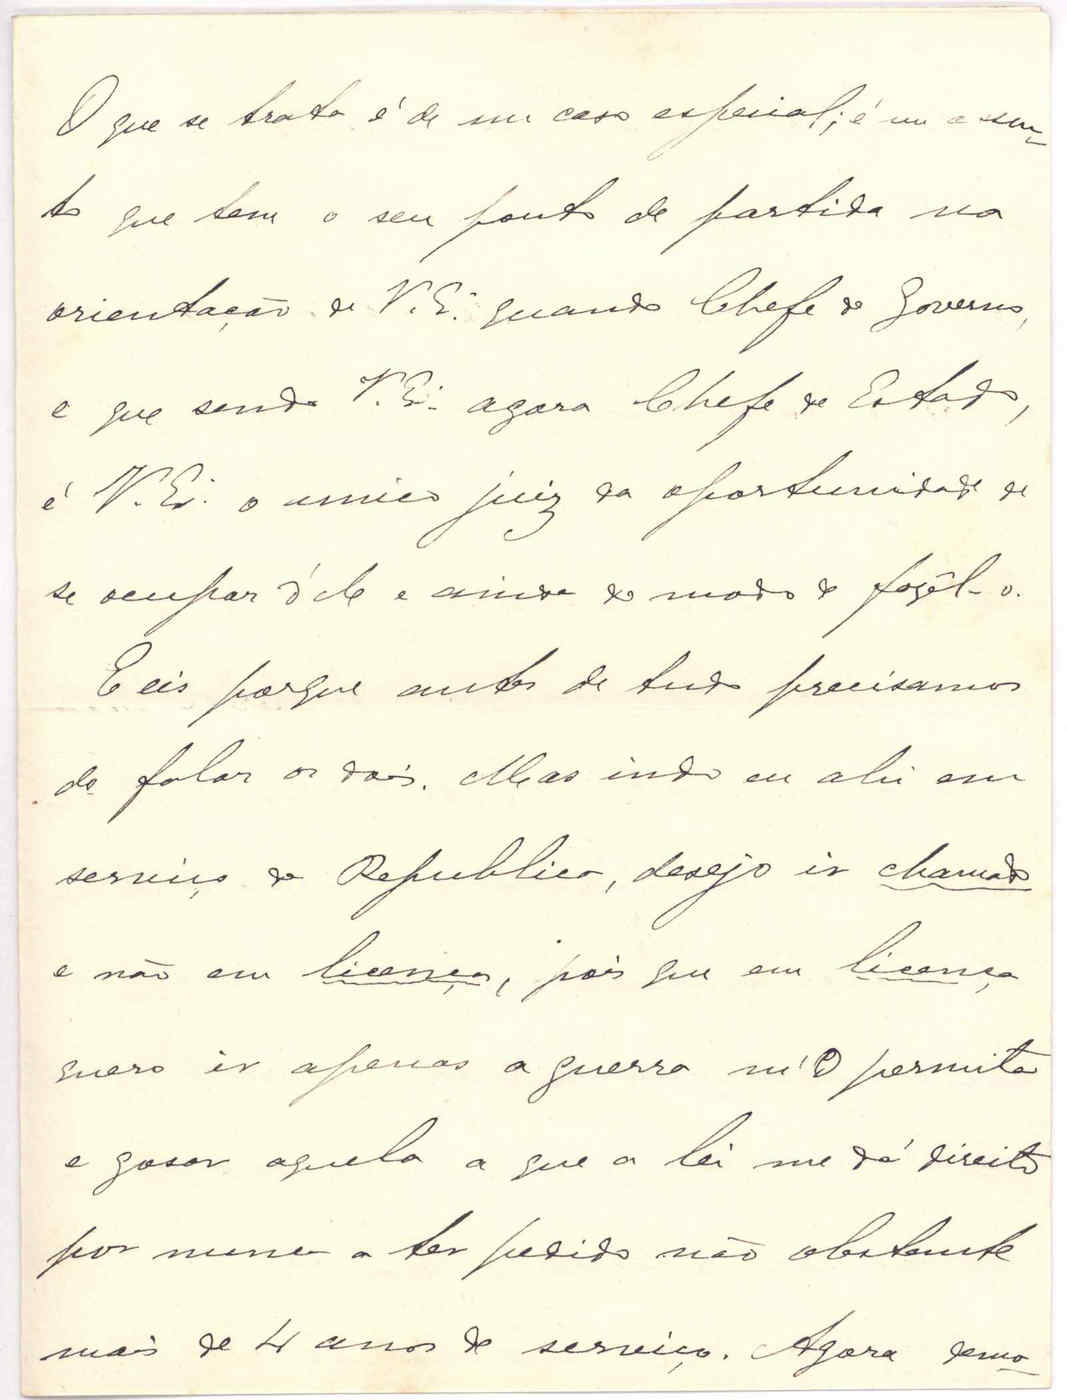 O que se trata é de um caso especial; é um assun-
to que tem o seu ponto de partida na
orientação de V. Ex. quando Chefe do Governo,
e que sendo V. Ex. agora Chefe de Estado,
é V. Ex. o unico juiz da oportunidade de
se ocupar d'ele e ainda do modo de fazêl-o.
E eis porque antes de tudo precisamos
de falar os dois. Mas indo eu ahi em
serviço da Republica, desejo ir chamado
e não em licença, pois que em licença
quero ir apenas a guerra m'o permita
e gosar aquela a que a lei me dá direito
por nunca a ter pedido não obstante
mais de 4 anos de serviço. Agora demo-